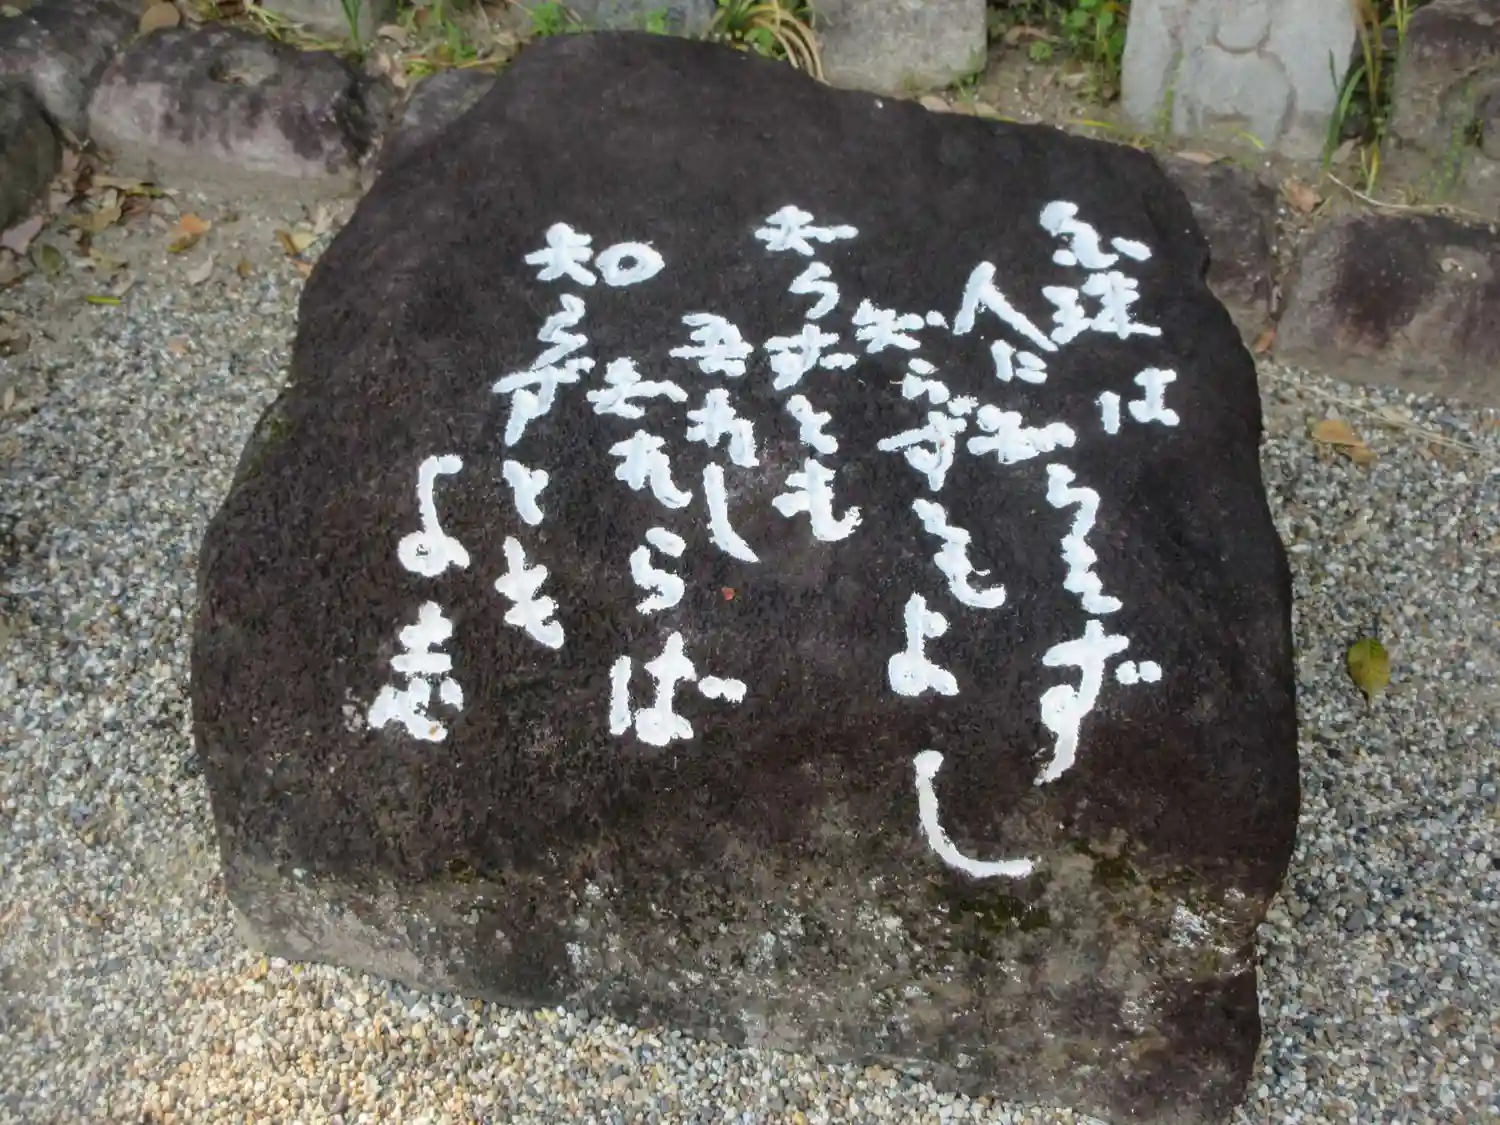 白珠は
人に志らえず
志らずともよし
志らずとも
吾れし
志れらば
知らずとも
よ志